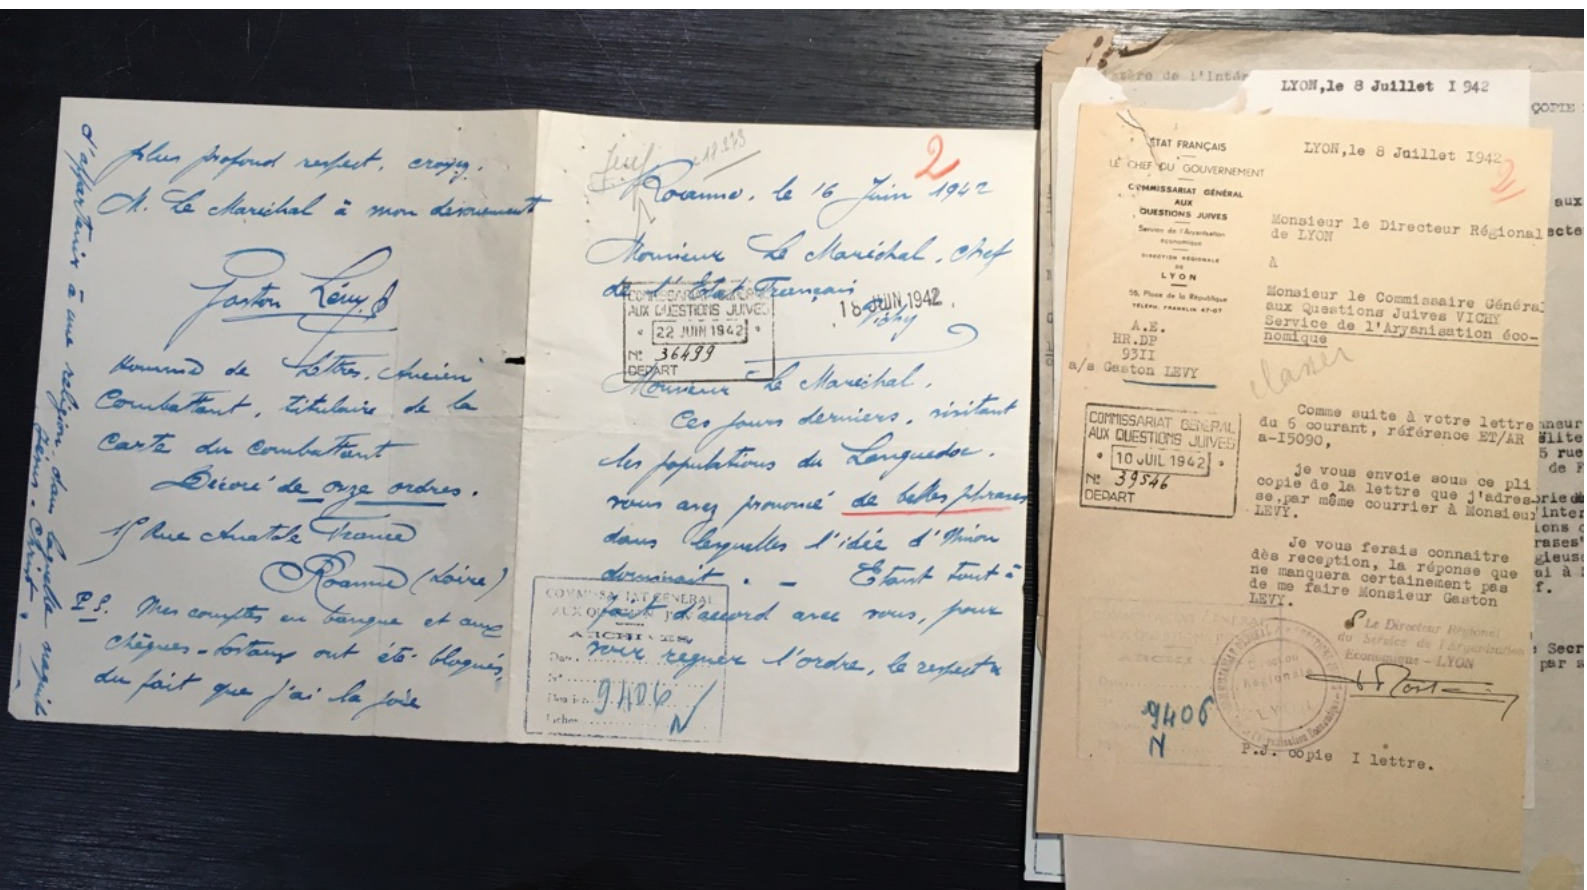 plus profond respect, croyez.
M. Le Maréchal à mon dévouement
Gaston Lévy
Homme de Lettres. Ancien
Combattant, titulaire de la
Carte du Combattant
Décoré de onze ordres.
Rue Anatole France
Roanne (Loire)
P.S. Mes comptes en banque et aux
chèques-Postaux ont été bloqués,
du fait que j'ai la joie
d'appartenir à une religion dans laquelle naquit
Jésus-Christ.
2
Roanne, le 16 Juin 1942
Monsieur Le Maréchal, Chef
de l'Etat Français
Vichy
18 JUIN 1942
COMMISSARIAT GENERAL
AUX QUESTIONS JUIVES
22 JUIN 1942
N° 36499
DEPART
Monsieur Le Maréchal,
Ces jours derniers, visitant
les populations du Languedoc,
vous avez prononcé de belles phrases
dans lesquelles l'idée d'Union
dominait. - Etant tout à
fait d'accord avec vous, pour
voir régner l'ordre, le respect
COMMISSARIAT GENERAL
ARCHIVES
9406
N
LYON,le 8 Juillet I942
COPIE
ÉTAT FRANÇAIS
LE CHEF DU GOUVERNEMENT
COMMISSARIAT GÉNÉRAL
AUX
QUESTIONS JUIVES
Service de l'Aryanisation
économique
DIRECTION RÉGIONALE
DE
LYON
Place de la République
TÉLÉPH. FRANKLIN 47-07
A.E.
HR.DP
93II
a/s Gaston LEVY
LYON,le 8 Juillet I942
2
Monsieur le Directeur Régional
de LYON
A
Monsieur le Commissaire Général
aux Questions Juives VICHY
Service de l'Aryanisation éco-
nomique
classer
COMMISSARIAT GENERAL
AUX QUESTIONS JUIVES
10 JUIL 1942
N° 39546
DEPART
Comme suite à votre lettre
du 6 courant, référence ET/AR
a-I5090,
je vous envoie sous ce pli
copie de la lettre que j'adres-
se,par même courrier à Monsieur
LEVY.
Je vous ferais connaitre
dès reception, la réponse que
ne manquera certainement pas
de me faire Monsieur Gaston
LEVY.
Le Directeur Régional
du Service de l'Aryanisation
Economique - LYON
Direction
Régionale
LYON
9406
N
P.J. copie I lettre.